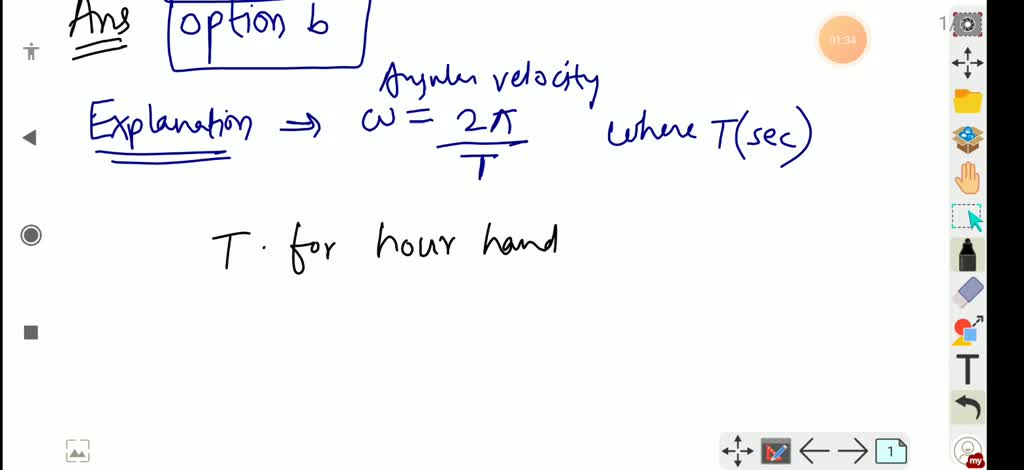 Ans option b
01:34
1/
Angular velocity
Explanation ⇒ ω = 2π/T where T(sec)
T. for hour hand
T
1
my